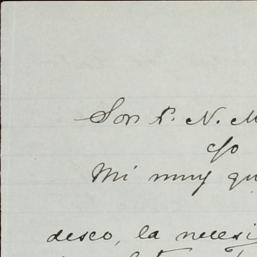 Son P. N. M
c/o
Mi muy qu
deseo, la necesi